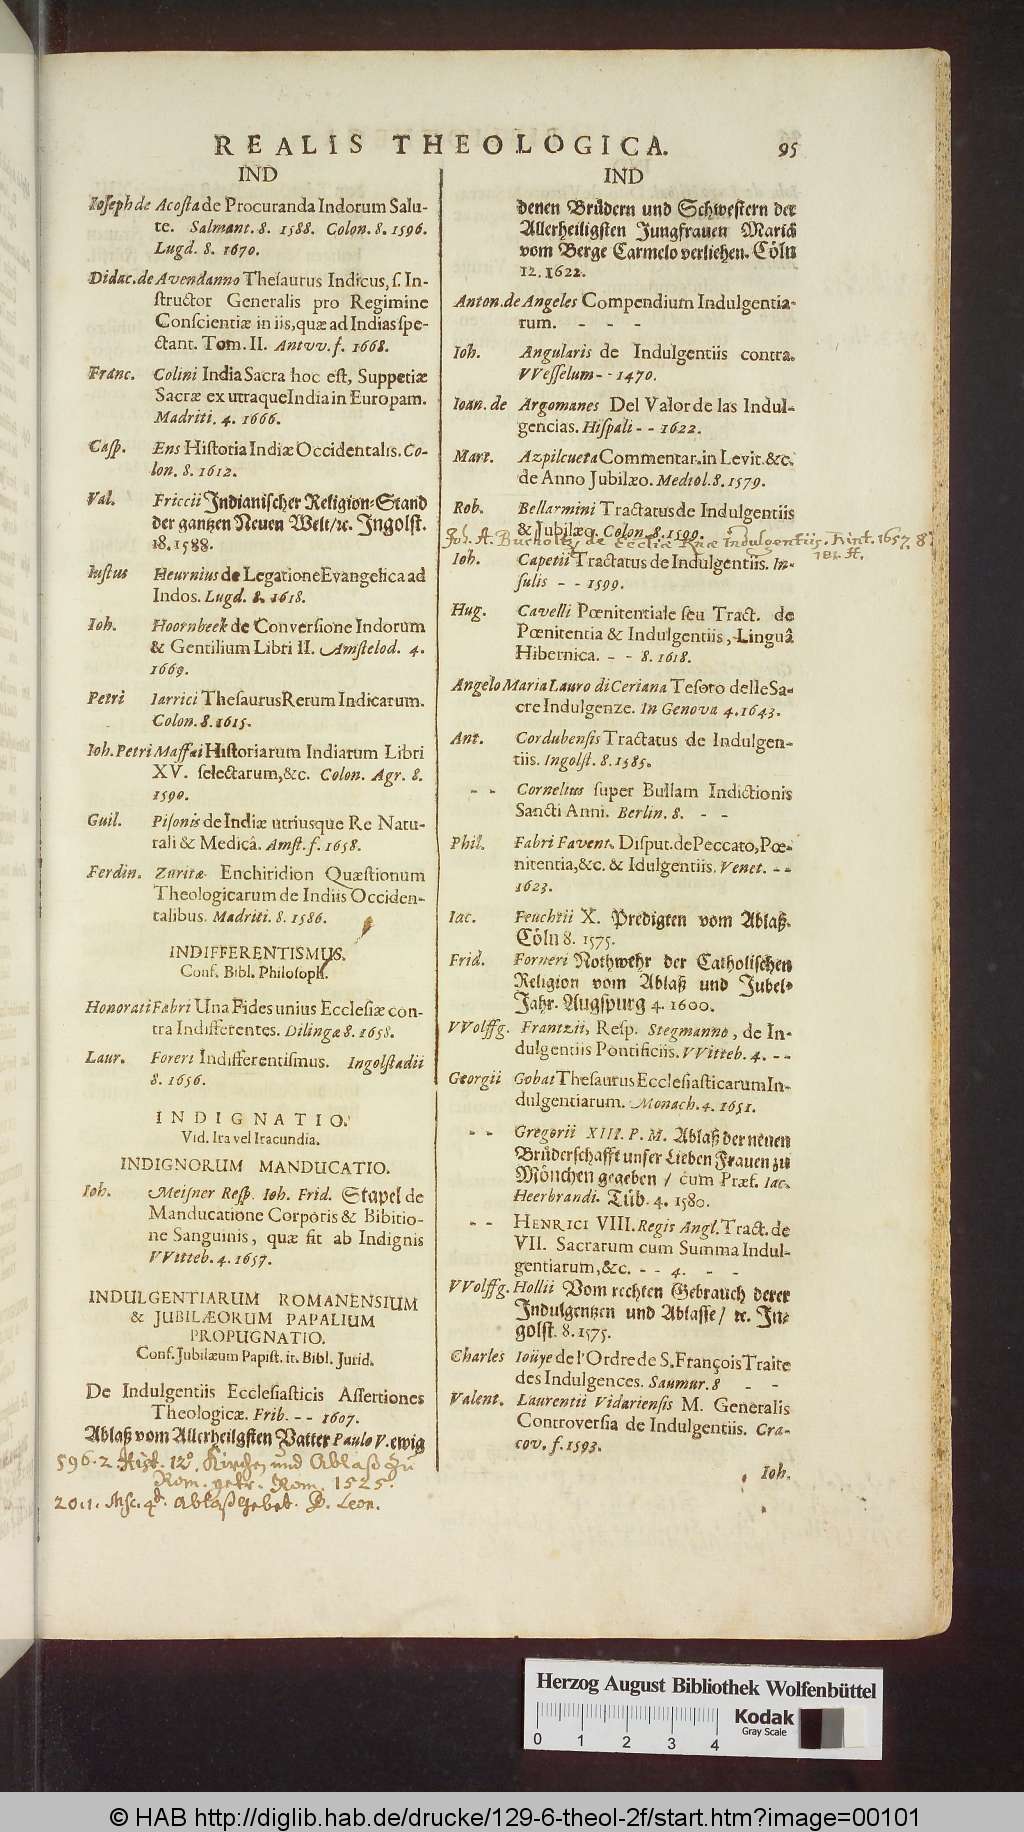 REALIS THEOLOGICA. 95
IND
Ioseph de Acosta de Procuranda Indorum Salu-
te. Salmant. 8. 1588. Colon. 8. 1596.
Lugd. 8. 1670.
Didac. de Avendanno Thesaurus Indicus, s. In-
structor Generalis pro Regimine
Conscientiæ in iis, quæ ad Indias spe-
ctant. Tom. II. Antvv. f. 1668.
Franc. Colini India Sacra hoc est, Suppetiæ
Sacræ ex utraque India in Europam.
Madriti. 4. 1666.
Casp. Ens Historia Indiæ Occidentalis. Co-
lon. 8. 1612.
Val. Friccii Indianischer Religion-Stand
der gantzen Neuen Welt/ ꝛc. Ingolst.
18. 1588.
Iustus Heurnius de Legatione Evangelica ad
Indos. Lugd. 8. 1618.
Ioh. Hoornbeek de Conversione Indorum
& Gentilium Libri II. Amstelod. 4.
1669.
Petri Iarrici Thesaurus Rerum Indicarum.
Colon. 8. 1615.
Ioh. Petri Maffai Historiarum Indiarum Libri
XV. selectarum, &c. Colon. Agr. 8.
1590.
Guil. Pisonis de Indiæ utriusque Re Natu-
rali & Medicâ. Amst. f. 1658.
Ferdin. Zuritæ Enchiridion Quæstionum
Theologicarum de Indiis Occiden-
talibus. Madriti. 8. 1586.
INDIFFERENTISMUS.
Conf. Bibl. Philosoph.
Honorati Fabri Una Fides unius Ecclesiæ con-
tra Indifferentes. Dilingæ 8. 1658.
Laur. Foreri Indifferentismus. Ingolstadii
8. 1656.
INDIGNATIO.
Vid. Ira vel Iracundia.
INDIGNORUM MANDUCATIO.
Ioh. Meisner Resp. Ioh. Frid. Stapel de
Manducatione Corporis & Bibitio-
ne Sanguinis, quæ fit ab Indignis
VVitteb. 4. 1657.
INDULGENTIARUM ROMANENSIUM
& JUBILÆORUM PAPALIUM
PROPUGNATIO.
Conf. Jubilæum Papist. it. Bibl. Jurid.
De Indulgentiis Ecclesiasticis Assertiones
Theologicæ. Frib. - - 1607.
Ablaß vom Allerheiligsten Vatter Paulo V. ewig
596. 2 Hist. 12°. Kirchen und Ablaß zu
Rom. getr. Rom. 1525.
20.1. Msc. 4t. Ablaßgebet. D. Leon.
IND
denen Brüdern und Schwestern der
Allerheiligsten Jungfrauen Mariä
vom Berge Carmelo verliehen. Cöln
12. 1622.
Anton. de Angeles Compendium Indulgentia-
rum. - - -
Ioh. Angularis de Indulgentiis contra
VVesselum - - 1470.
Ioan. de Argomanes Del Valor de las Indul-
gencias. Hispali - - 1622.
Mart. Azpilcueta Commentar. in Levit. &c.
de Anno Jubilæo. Mediol. 8. 1579.
Rob. Bellarmini Tractatus de Indulgentiis
& Jubilæo. Colon. 8. 1599.
Joh. A. Bucholtz de Ecclesiæ Indulgentiis. Rint. 1657. 8
Ioh. Capetii Tractatus de Indulgentiis. In-
sulis - - 1599.
Hug. Cavelli Pœnitentiale seu Tract. de
Pœnitentia & Indulgentiis, Linguâ
Hibernica. - - 8. 1618.
Angelo Maria Lauro di Ceriana Tesoro delle Sa-
cre Indulgenze. In Genova 4. 1643.
Ant. Cordubensis Tractatus de Indulgen-
tiis. Ingolst. 8. 1585.
- - Cornelius super Bullam Indictionis
Sancti Anni. Berlin. 8. - -
Phil. Fabri Favent. Disput. de Peccato, Pœ-
nitentia, &c. & Idulgentiis. Venet. - -
1623.
Iac. Feuchtii X. Predigten vom Ablaß.
Cöln 8. 1575.
Frid. Forneri Nothwehr der Catholischen
Religion vom Ablaß und Jubel-
Jahr. Augspurg 4. 1600.
VVolffg. Frantzii, Resp. Stegmanno, de In-
dulgentiis Pontificiis. VVitteb. 4. - -
Georgii Gobat Thesaurus Ecclesiasticarum In-
dulgentiarum. Monach. 4. 1651.
- - Gregorii XIII. P. M. Ablaß der neuen
Brüderschafft unser Lieben Frauen zu
München gegeben / cum Præf. Iac.
Heerbrandi. Tüb. 4. 1580.
- - HENRICI VIII. Regis Angl. Tract. de
VII. Sacrarum cum Summa Indul-
gentiarum, &c. - - 4. - -
VVolffg. Hollii Vom rechten Gebrauch derer
Indulgentzen und Ablasse / ꝛc. In-
golst. 8. 1575.
Charles Ioüye de l'Ordre de S. François Traite
des Indulgences. Saumur. 8 - -
Valent. Laurentii Vidariensis M. Generalis
Controversia de Indulgentiis. Cra-
cov. f. 1593.
Ioh.
Herzog August Bibliothek Wolfenbüttel
Kodak
Gray Scale
0 1 2 3 4
© HAB http://diglib.hab.de/drucke/129-6-theol-2f/start.htm?image=00101